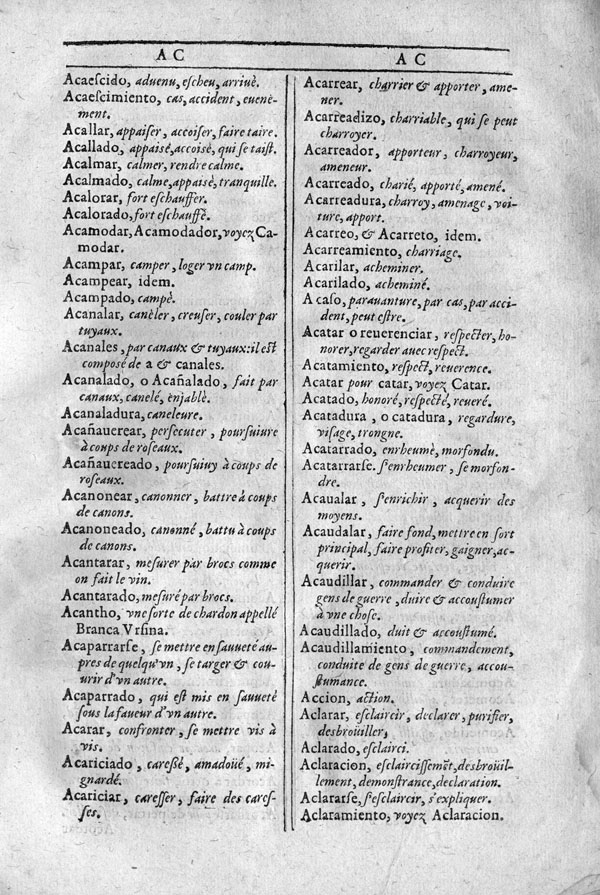 AC
Acaeſcido, aduenu, eſcheu, arriuè.
Acaeſcimiento, cas, accident, euene-
ment.
Acallar, appaiſer, accoiſer, faire taire.
Acallado, appaisè, accoisè, qui ſe taiſt.
Acalmar, calmer, rendre calme.
Acalmado, calme, appaisè, tranquille.
Acalorar, fort eſchauffer.
Acalorado, fort eſchauffè.
Acamodar, Acamodador, voyez Ca-
modar.
Acampar, camper, loger vn camp.
Acampear, idem.
Acampado, campè.
Acanalar, canèler, creuſer, couler par
tuyaux.
Acanales, par canaux & tuyaux: il eſt
compoſé de a & canales.
Acanalado, o Acañalado, fait par
canaux, canelé, enjablè.
Acanaladura, caneleure.
Acañauerear, perſecuter, pourſuiure
à coups de roſeaux.
Acañauereado, pourſuiuy à coups de
roſeaux.
Acanonear, canonner, battre à coups
de canons.
Acanoneado, canonné, battu à coups
de canons.
Acantarar, meſurer par brocs comme
on fait le vin.
Acantarado, meſuré par brocs.
Acantho, vne ſorte de chardon appellé
Branca Vrſina.
Acaparrarſe, ſe mettre en ſauueté au-
pres de quelqu'vn, ſe targer & cou-
urir d'vn autre.
Acaparrado, qui eſt mis en ſauueté
ſous la faueur d'vn autre.
Acarar, confronter, ſe mettre vis à
vis.
Acariciado, careßé, amadoüé, mi-
gnardé.
Acariciar, careſſer, faire des careſ-
ſes.
AC
Acarrear, charrier & apporter, ame-
ner.
Acarreadizo, charriable, qui ſe peut
charroyer.
Acarreador, apporteur, charroyeur,
ameneur.
Acarreado, charié, apporté, amené.
Acarreadura, charroy, amenage, voi-
ture, apport.
Acarreo, & Acarreto, idem.
Acarreamiento, charriage.
Acarilar, acheminer.
Acarilado, acheminé.
A caſo, parauanture, par cas, par acci-
dent, peut eſtre.
Acatar o reuerenciar, reſpecter, ho-
norer, regarder auec reſpect.
Acatamiento, reſpect, reuerence.
Acatar pour catar, voyez Catar.
Acatado, honoré, reſpecté, reueré.
Acatadura, o catadura, regardure,
viſage, trongne.
Acatarrado, enrheumè, morfondu.
Acatarrarſe. ſ'enrheumer, ſe morfon-
dre.
Acaualar, ſ'enrichir, acquerir des
moyens.
Acaudalar, faire fond, mettre en ſort
principal, faire profiter, gaigner, ac-
querir.
Acaudillar, commander & conduire
gens de guerre, duire & accouſtumer
à vne choſe.
Acaudillado, duit & accouſtumé.
Acaudillamiento, commandement,
conduite de gens de guerre, accou-
ſtumance.
Accion, action.
Aclarar, eſclaircir, declarer, purifier,
desbroüiller,
Aclarado, eſclairci.
Aclaracion, eſclairciſſemẽt, desbroüil-
lement, demonſtrance, declaration.
Aclararſe, ſ'eſclaircir, s'expliquer.
Aclaramiento, voyez Aclaracion.